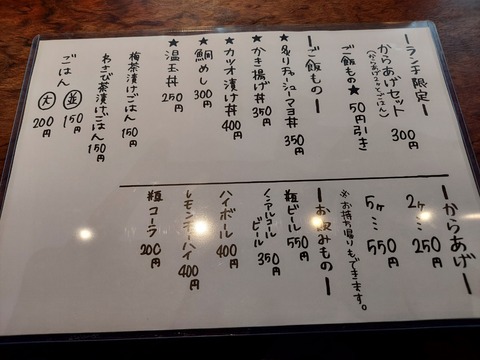 ーランチ限定ー
からあげセット 300円
(からあげ2ヶとごはん)
ご飯もの★ 50円引き
ーご飯ものー
★炙りチャーシューマヨ丼 350円
★かき揚げ丼 350円
★カツオ漬け丼 400円
★鯛めし 300円
★温玉丼 250円
梅茶漬けごはん 150円
わさび茶漬けごはん 150円
ごはん 並 150円
大 200円
ーからあげー
2ヶ… 250円
5ヶ… 550円
※お持ち帰りもできます。
ーお飲みものー
瓶ビール 550円
ノンアルコールビール 350円
ハイボール 400円
レモンチューハイ 400円
瓶コーラ 200円